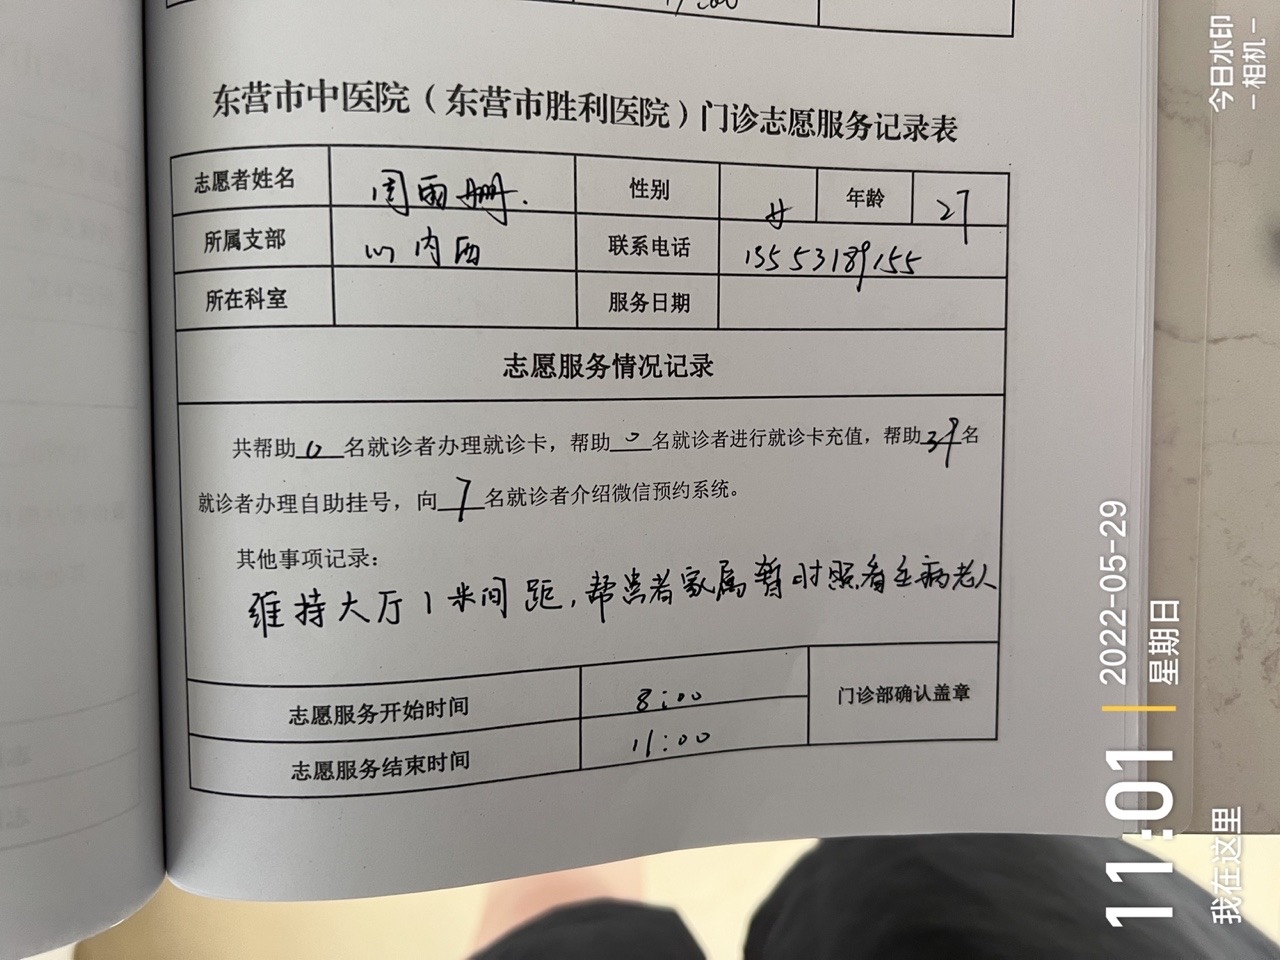 17:00
东营市中医院（东营市胜利医院）门诊志愿服务记录表
志愿者姓名 周雨姗. 性别 女 年龄 27
所属支部 心内西 联系电话 13553189155
所在科室 服务日期
志愿服务情况记录
共帮助 0 名就诊者办理就诊卡，帮助 0 名就诊者进行就诊卡充值，帮助 39 名
就诊者办理自助挂号，向 7 名就诊者介绍微信预约系统。
其他事项记录：
维持大厅1米间距，帮患者家属暂时照看生病老人
志愿服务开始时间 8:00 门诊部确认盖章
志愿服务结束时间 11:00
今日水印
-相机-
2022-05-29
星期日
11:01
我在这里